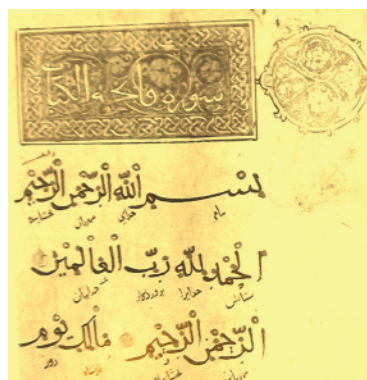 سورة فاتحة الكتاب
بِسْمِ اللّٰهِ الرَّحْمٰنِ الرَّحِيْمِ
بنام خدای مهربان
اَلْحَمْدُ لِلّٰهِ رَبِّ الْعَالَمِيْنَ
ستایش خدایرا پروردگار
الرَّحْمٰنِ الرَّحِيْمِ مَالِكِ يَوْمِ
روز